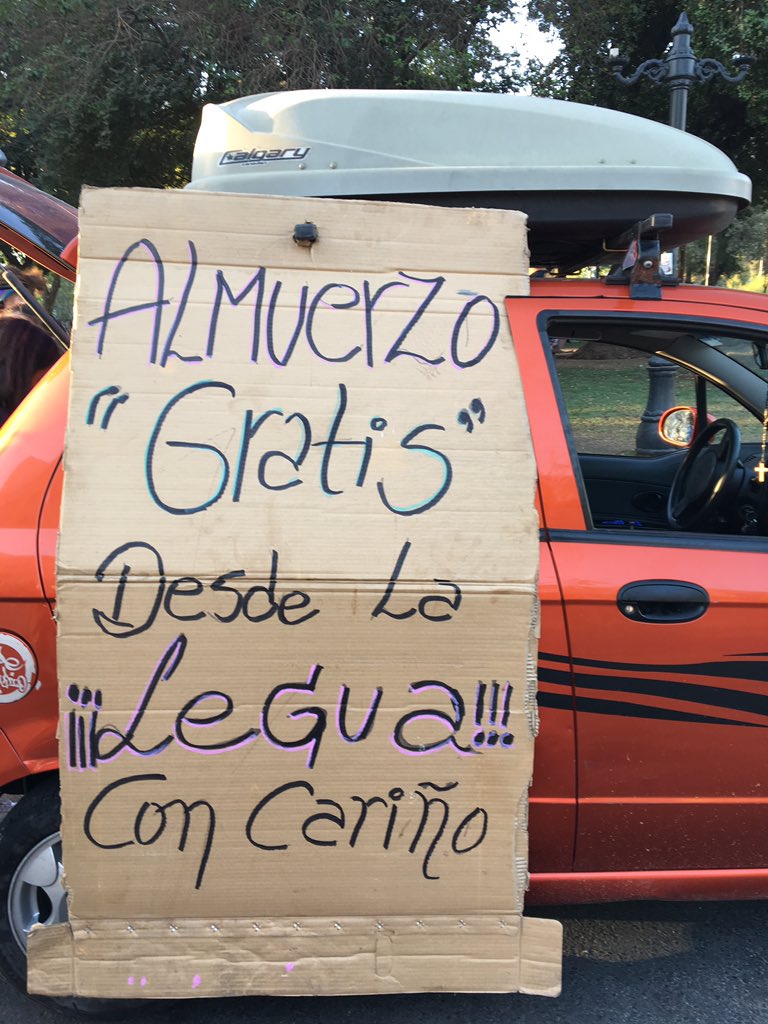 Calgary
ALMUERZO
"Gratis"
Desde La
¡¡¡LeGua!!!
Con Cariño